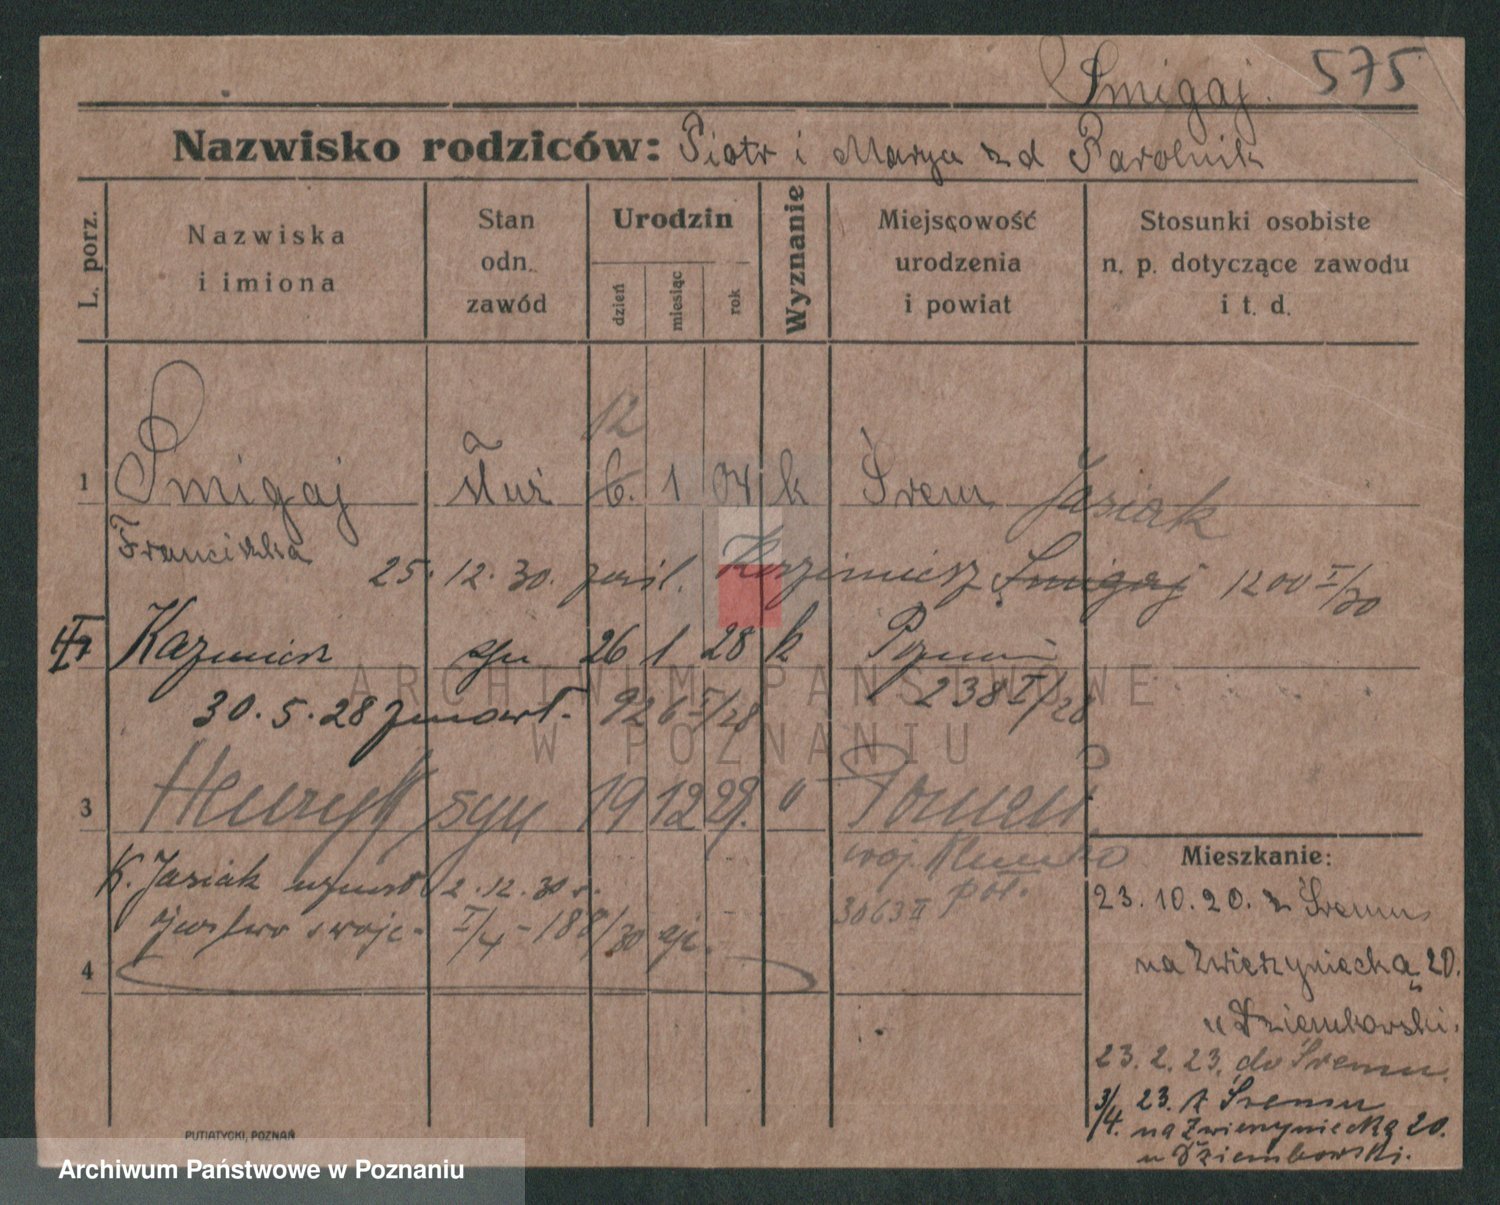 Śmigaj. 575
Nazwisko rodziców: Piotr i Marya z d Parolnik
L. porz.
Nazwiska i imiona
Stan odn. zawód
Urodzin
dzień
miesiąc
rok
Wyznanie
Miejscowość urodzenia i powiat
Stosunki osobiste n. p. dotyczące zawodu i t. d.
12
1 Śmigaj służ 6. 1 04 k Śrem Jasiak
Franciszka
25. 12. 30. zaśl. Kazimierz Śmigaj 1200 I/30
II Kazmierz syn 26 1 28 k Poznań
238 I/28
30. 5. 28 zmarł. 926 I/28
3 Henryk syn 19 12 29. " 
woj.
K. Jasiak 2. 12. 30 r.
3063 II
swoje I/4 - 188/30
4
Mieszkanie:
23. 10. 20. z Śremu
na Zwierzyniecką 20.
u Dziembowski.
23. 2. 23. do Śremu.
3/4. 23. z Śremu
na Zwierzyniecką 20.
u Dziembowski.
PUTIATYCKI, POZNAŃ
ARCHIWUM PAŃSTWOWE
W POZNANIU
Archiwum Państwowe w Poznaniu